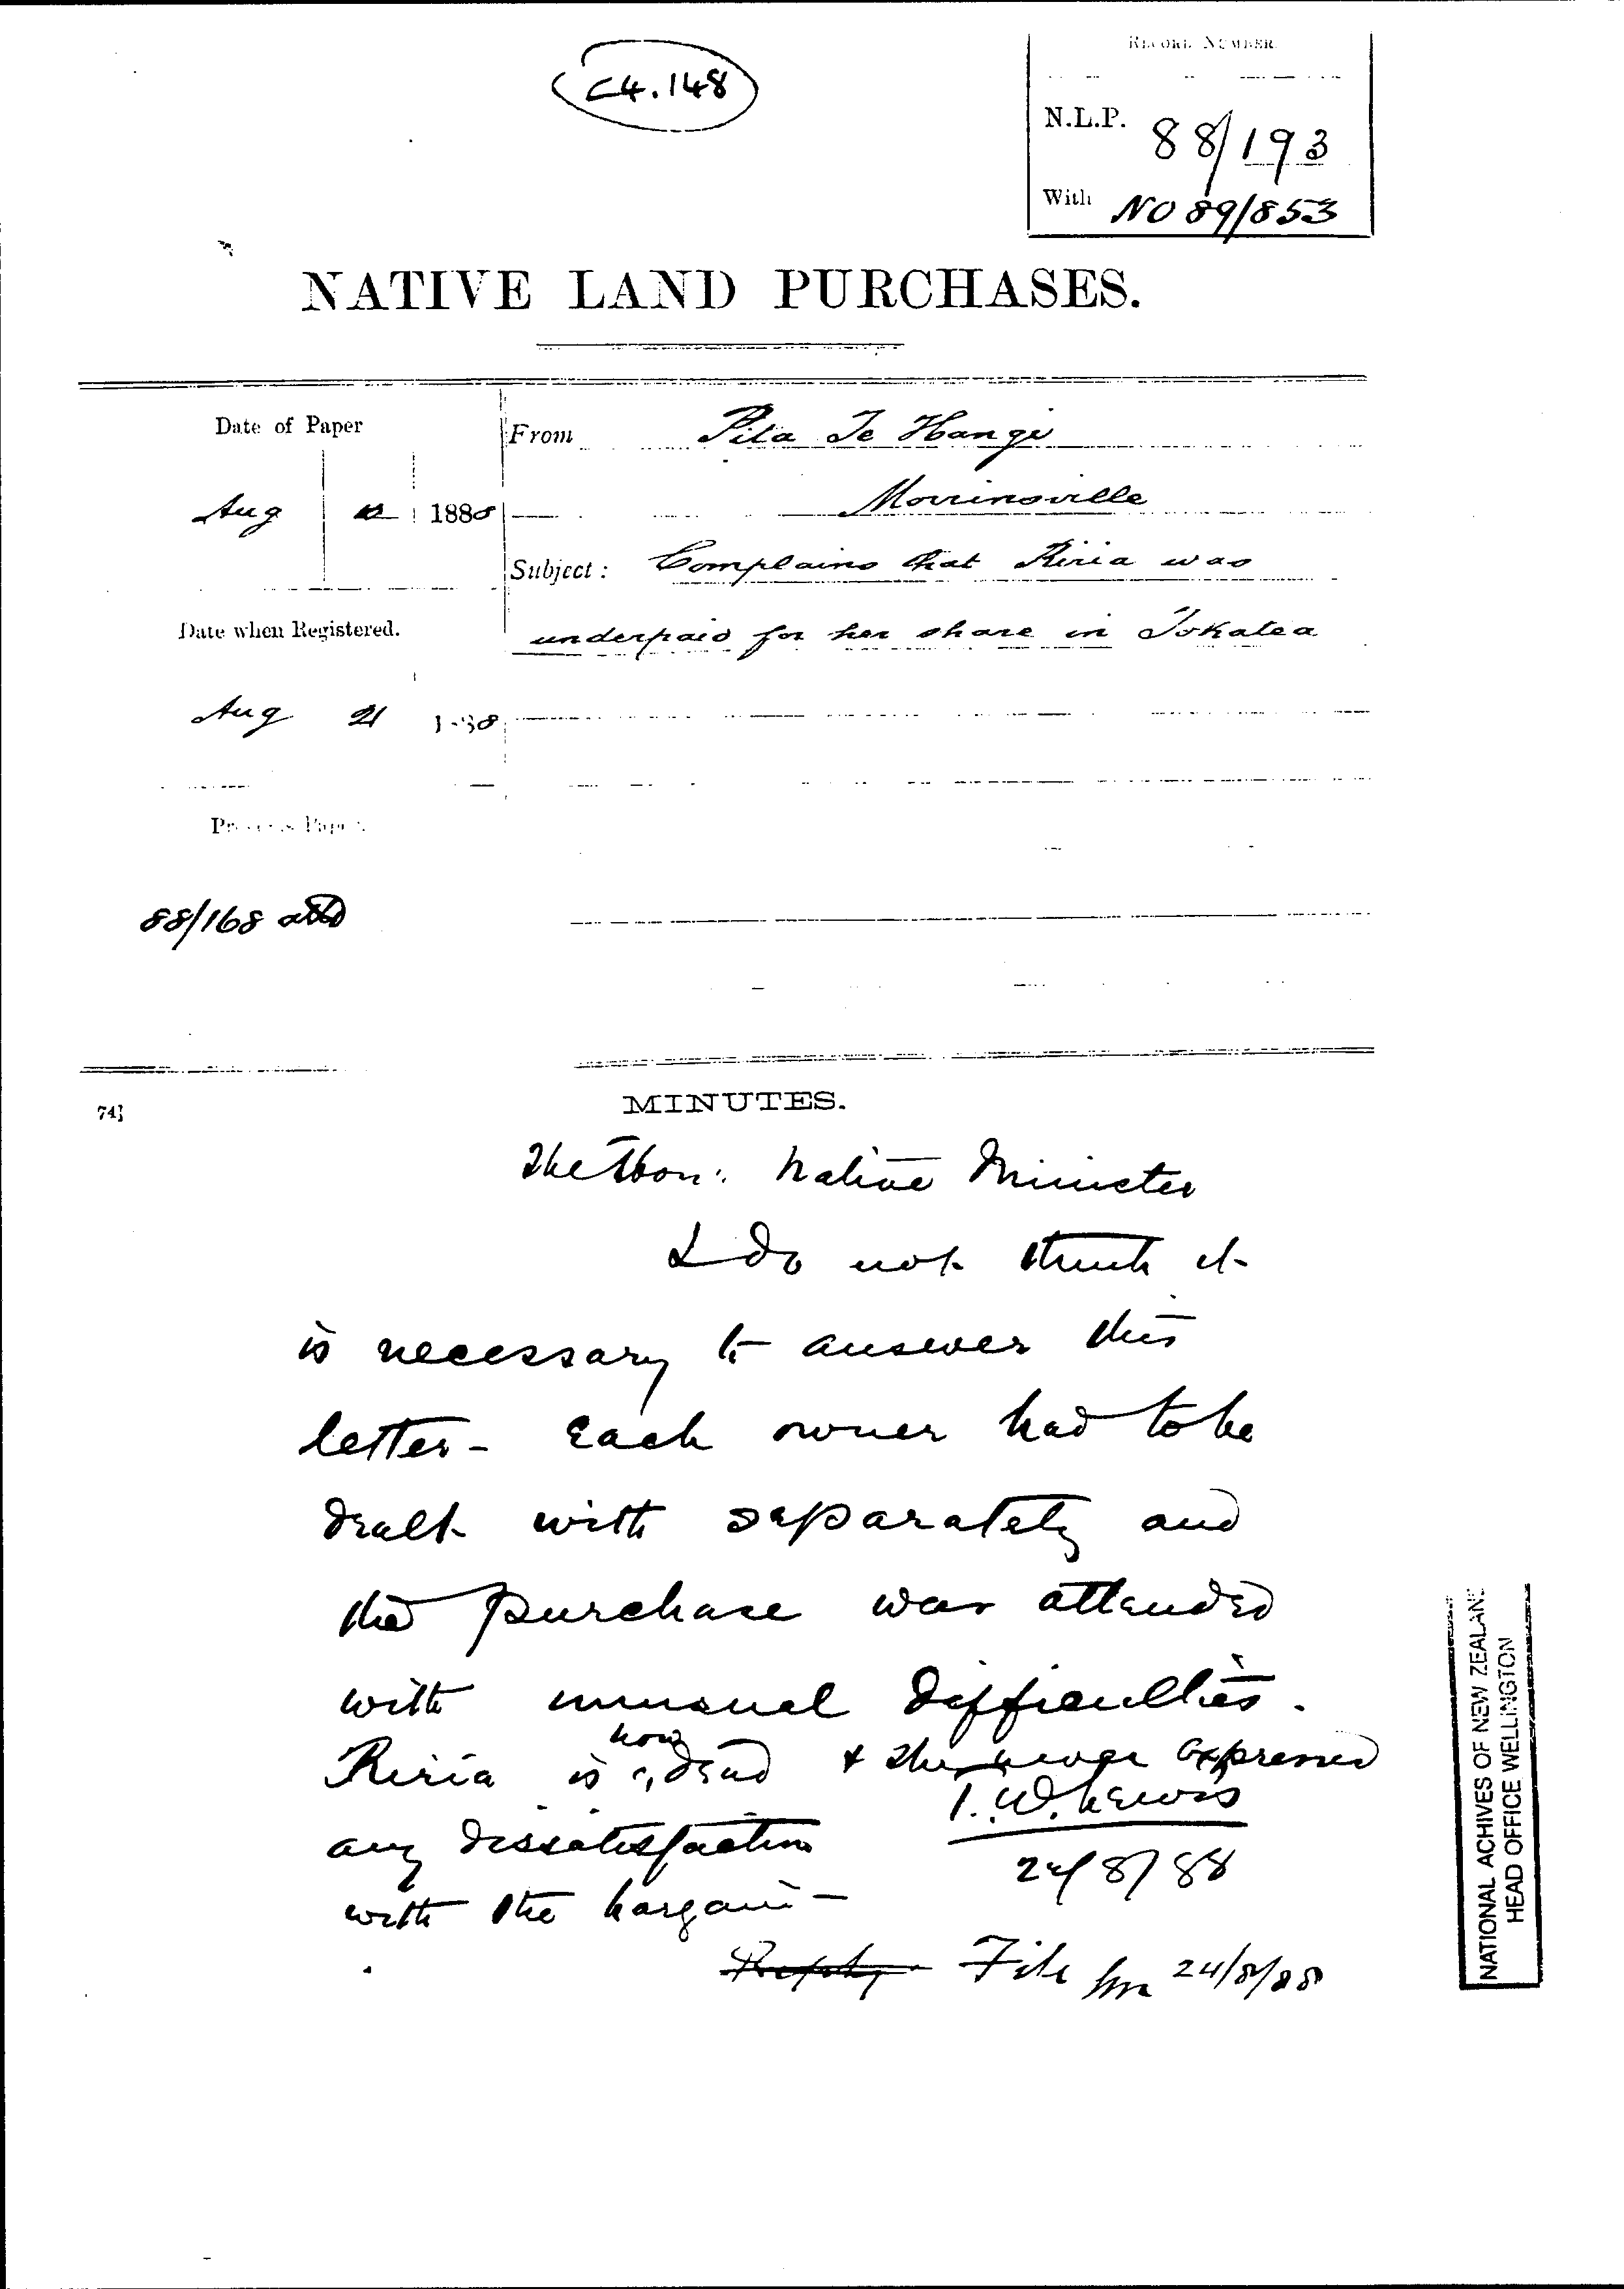 C4.148
RECORD NUMBER.
N.L.P. 88/193
With NO 89/853
NATIVE LAND PURCHASES.
Date of Paper
From Pita Te Hangi
Aug 1888
Morrinsville
Subject: Complains that Riria was
Date when Registered.
underpaid for her share in Tokatea
Aug 21 1888
Previous Paper.
88/168
74]
MINUTES.
The Hon: Native Minister
I do not think it
is necessary to answer this
letter - Each owner had to be
dealt with separately and
the purchase was attended
with unusual difficulties.
now
Riria is dead & she never expressed
any dissatisfaction
with the bargain -
T.W. Lewis
24/8/88
Reply File 24/8/88
NATIONAL ACHIVES OF NEW ZEALAND
HEAD OFFICE WELLINGTON